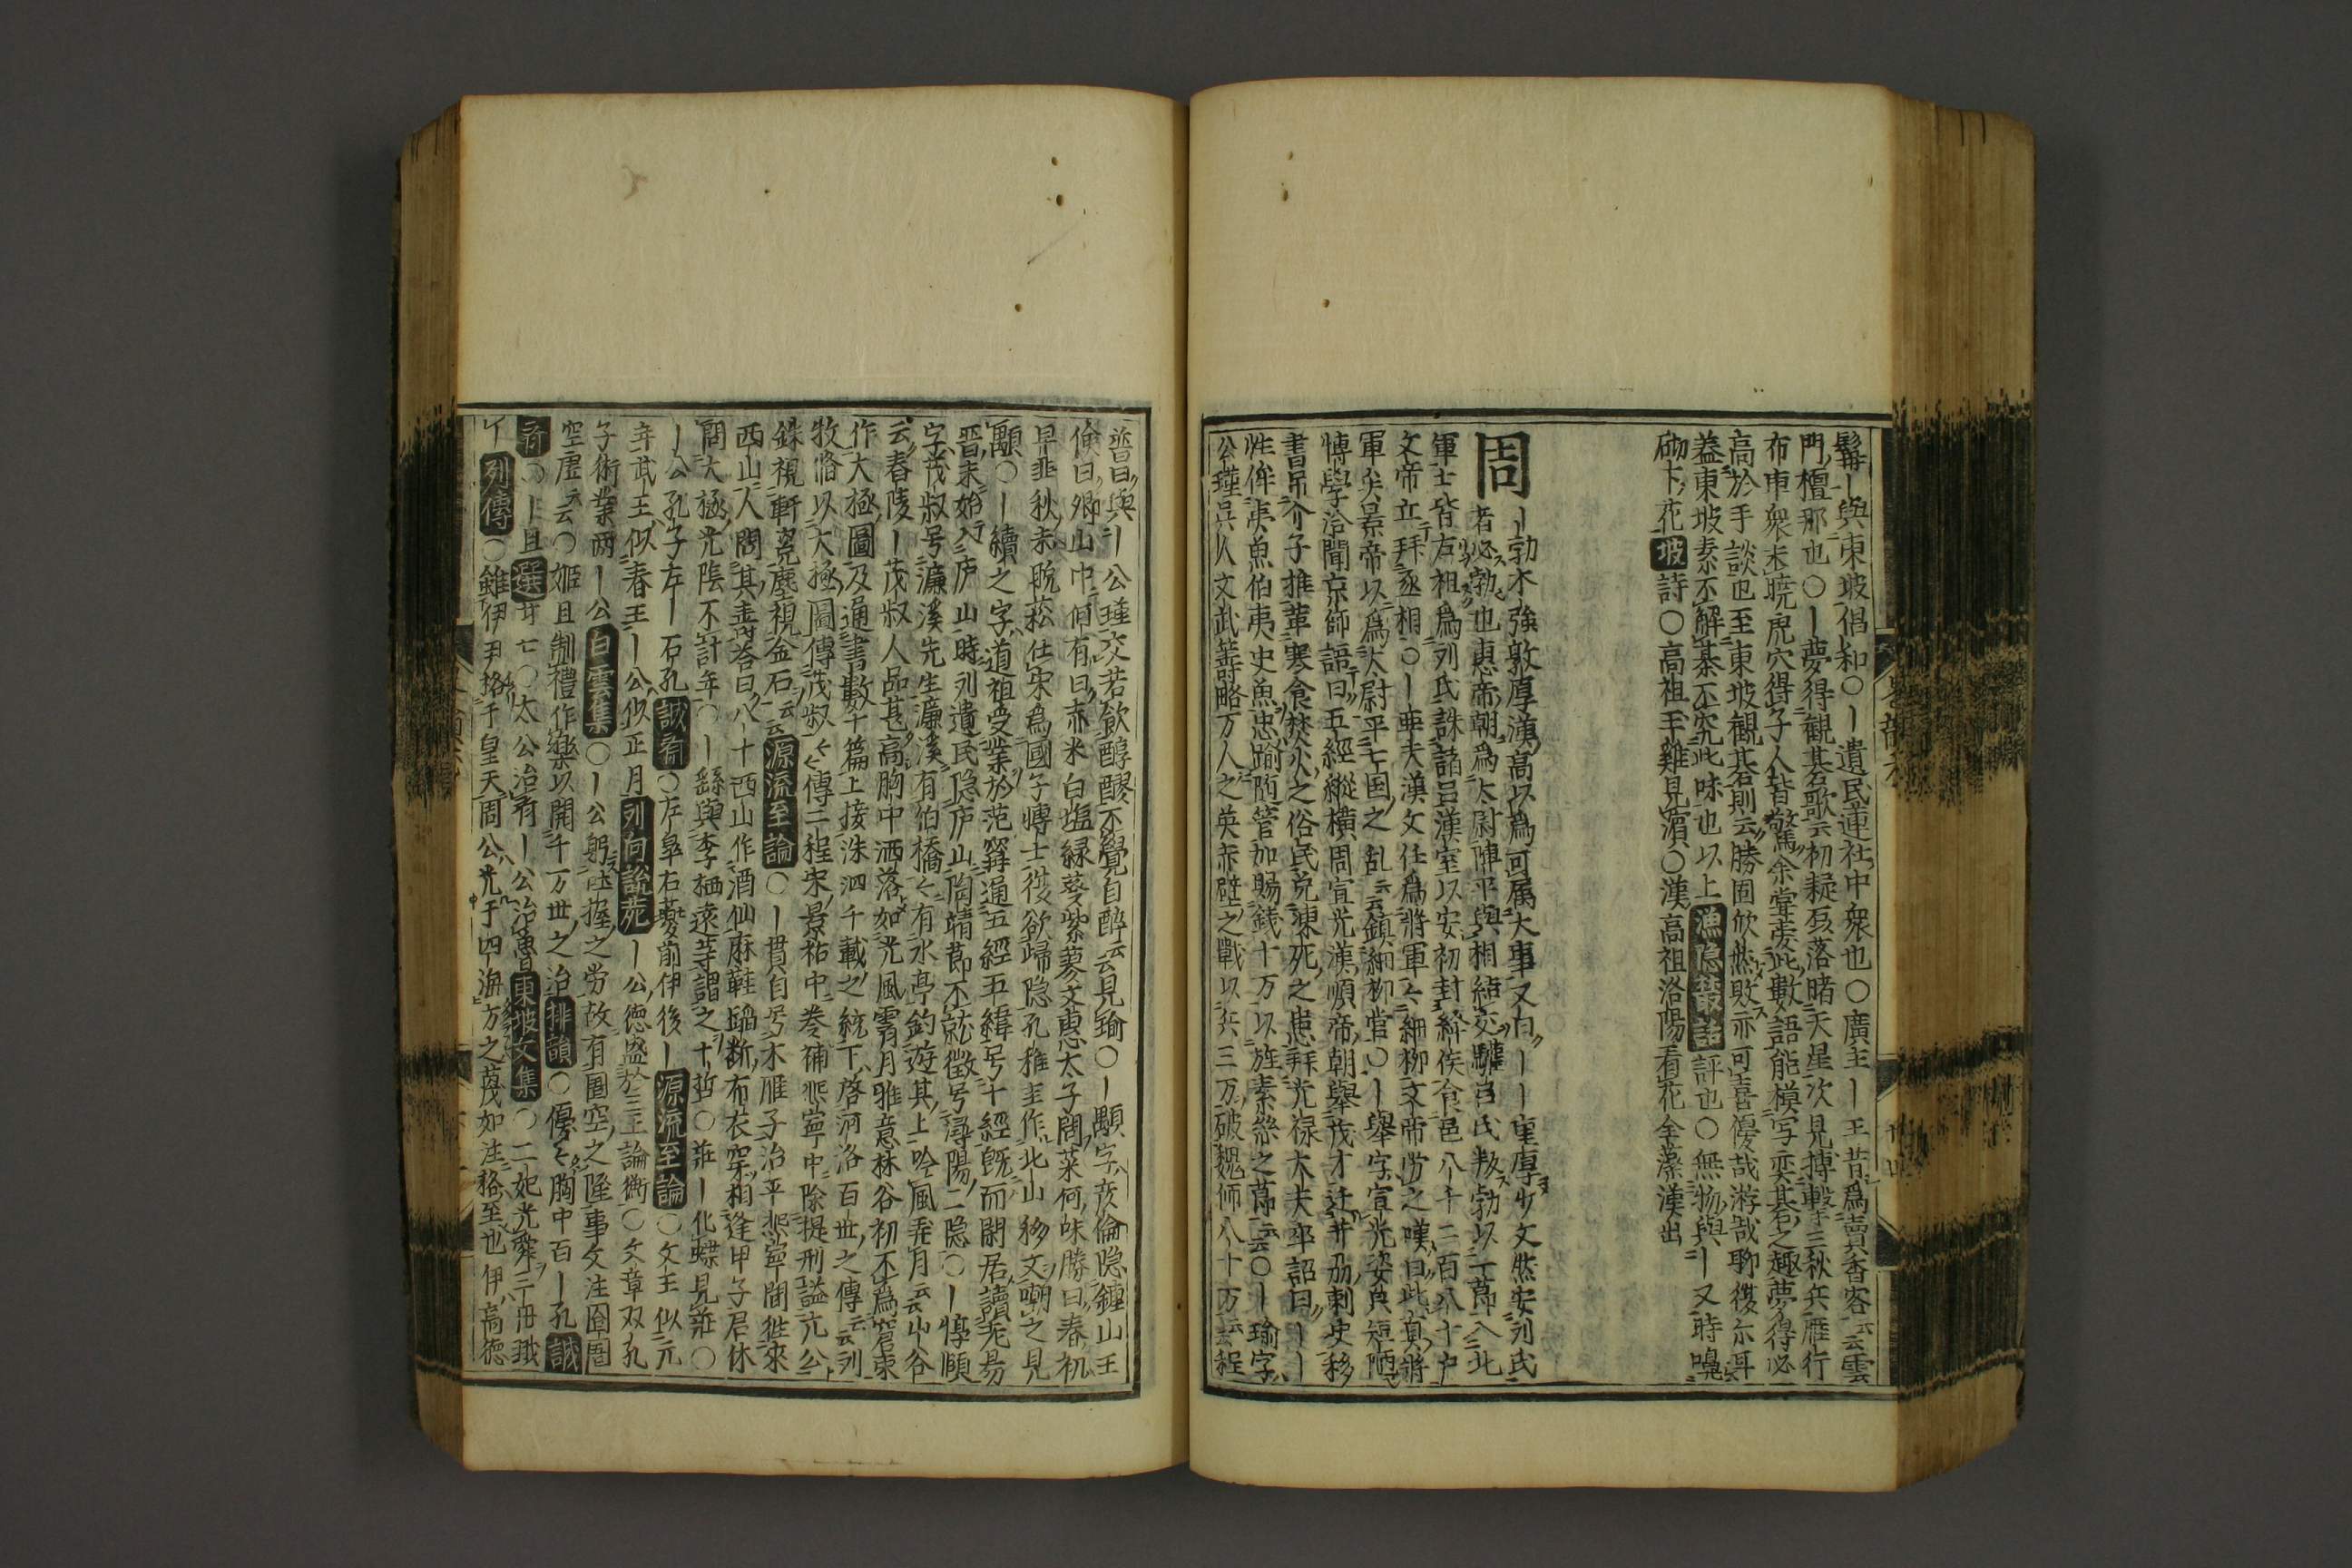 鬅丨與東坡倡和〇丨遺民蓮社中衆也〇廣主丨王昔爲賣香客云云雲
門檀那也〇丨夢得觀棊歌云初疑磊落曙天星次見搏擊三秋兵雁行
布申衆未曉虎穴得子人皆驚余嘗愛此數語能模写奕棊之趣夢得必
高於手談也至東坡觀棊則云勝固欣然敗亦可喜優哉游哉聊復尓耳
蓋東坡素不解棊不究此味也以上漁隠叢話評也〇無物與丨又時鳴
砌下花坡詩〇高祖手難見濵〇漢高祖洛陽看花全藁漢出
周丨勃木強敦厚漢高以爲可属大事又曰丨丨重厚少文然安刘氏
者必勃也惠帝朝爲太尉陳平與相結交驩呂氏叛勃以一節入北
軍士皆左祖爲列氏誅諸呂漢室以安初封絳侯食邑八千二百八十户
文帝立拜丞相〇丨亜夫漢文任爲將軍々細柳文帝労之嘆曰此真將
軍矣景帝以爲太尉平七国之乱云云鎮細柳営〇丨舉字宣光姿皃短陋
博學洽聞京師語曰五經縱橫周宣光漢順帝朝舉茂才迁并刕刺史移
書吊介子推革寒食焚火之俗民免凍死之患拜光禄大夫卒詔曰丨丨
性侔夷魚伯夷史魚忠踰随管加賜銭十万以旌素絲之節云云〇丨瑜字
公瑾呉人文武籌略万人之英赤壁之戰以兵三万破魏师八十万云云程
普曰與丨公瑾交若飲醇醪不覺自醉云云見瑜〇丨顒字彦倫隠鍾山王
倹曰卿山中何有曰赤米白塩緑葵紫蓼文惠太子問菜何味勝曰春初
早韭秋末晩菘仕宋爲國子博士後欲歸隠孔稚圭作北山移文嘲之見
顒〇丨續之字道祖受業於范甯通五經五緯号十經既而閑居讀老易
晋末始入庐山時列遺民隠庐山陶靖莭不就徴号潯陽二隠〇丨惇頤
字茂叔号濂溪先生濂溪有伯橋々有水亭釣遊其上吟風弄月云云山谷
云舂陵丨茂叔人品甚高胸中洒落如光風霽月雅意林谷初不爲窘束
作大極圖及通書數十篇上接洙泗千載之統下啓河洛百世之傳云云列
牧脩以大極圖傳茂叔々傳二程宋景祐中巻補熙寧中除提刑謚亢公
銖視軒冕塵視金石云云源流至論〇丨貫自号木雁子治平熙寧間徃來
西山人問其壽荅曰八十西山作酒仙麻鞋踏断布衣穿相逢甲子君休
問大極光陰不計年〇丨繇與李栖遠等謂之十哲〇荘丨化蝶見荘〇
丨公孔子左丨石孔誠斎〇左皐右夔前伊後丨源流至論〇文王似元
年武王似春王丨公似正月列向説苑丨公徳盛於三王論衡〇文章双孔
子術業兩丨公白雲集〇丨公躬吐握之労故有圄空之隆事文注囹圄
空虚云云〇姬旦制禮作樂以開千万世之治排韻〇優々胸中百丨孔誠
斎〇丨旦選廿七〇太公治斉丨公治魯東坡文集〇二妃光舜三冊戩
丫列傳〇雖伊尹挌于皇天周公光于四海方之蔑如注挌至也伊高徳